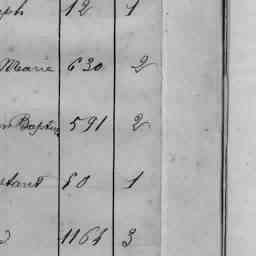 ph 12 1
Marie 630 2
Baptiste 591 2
80 1
1164 3